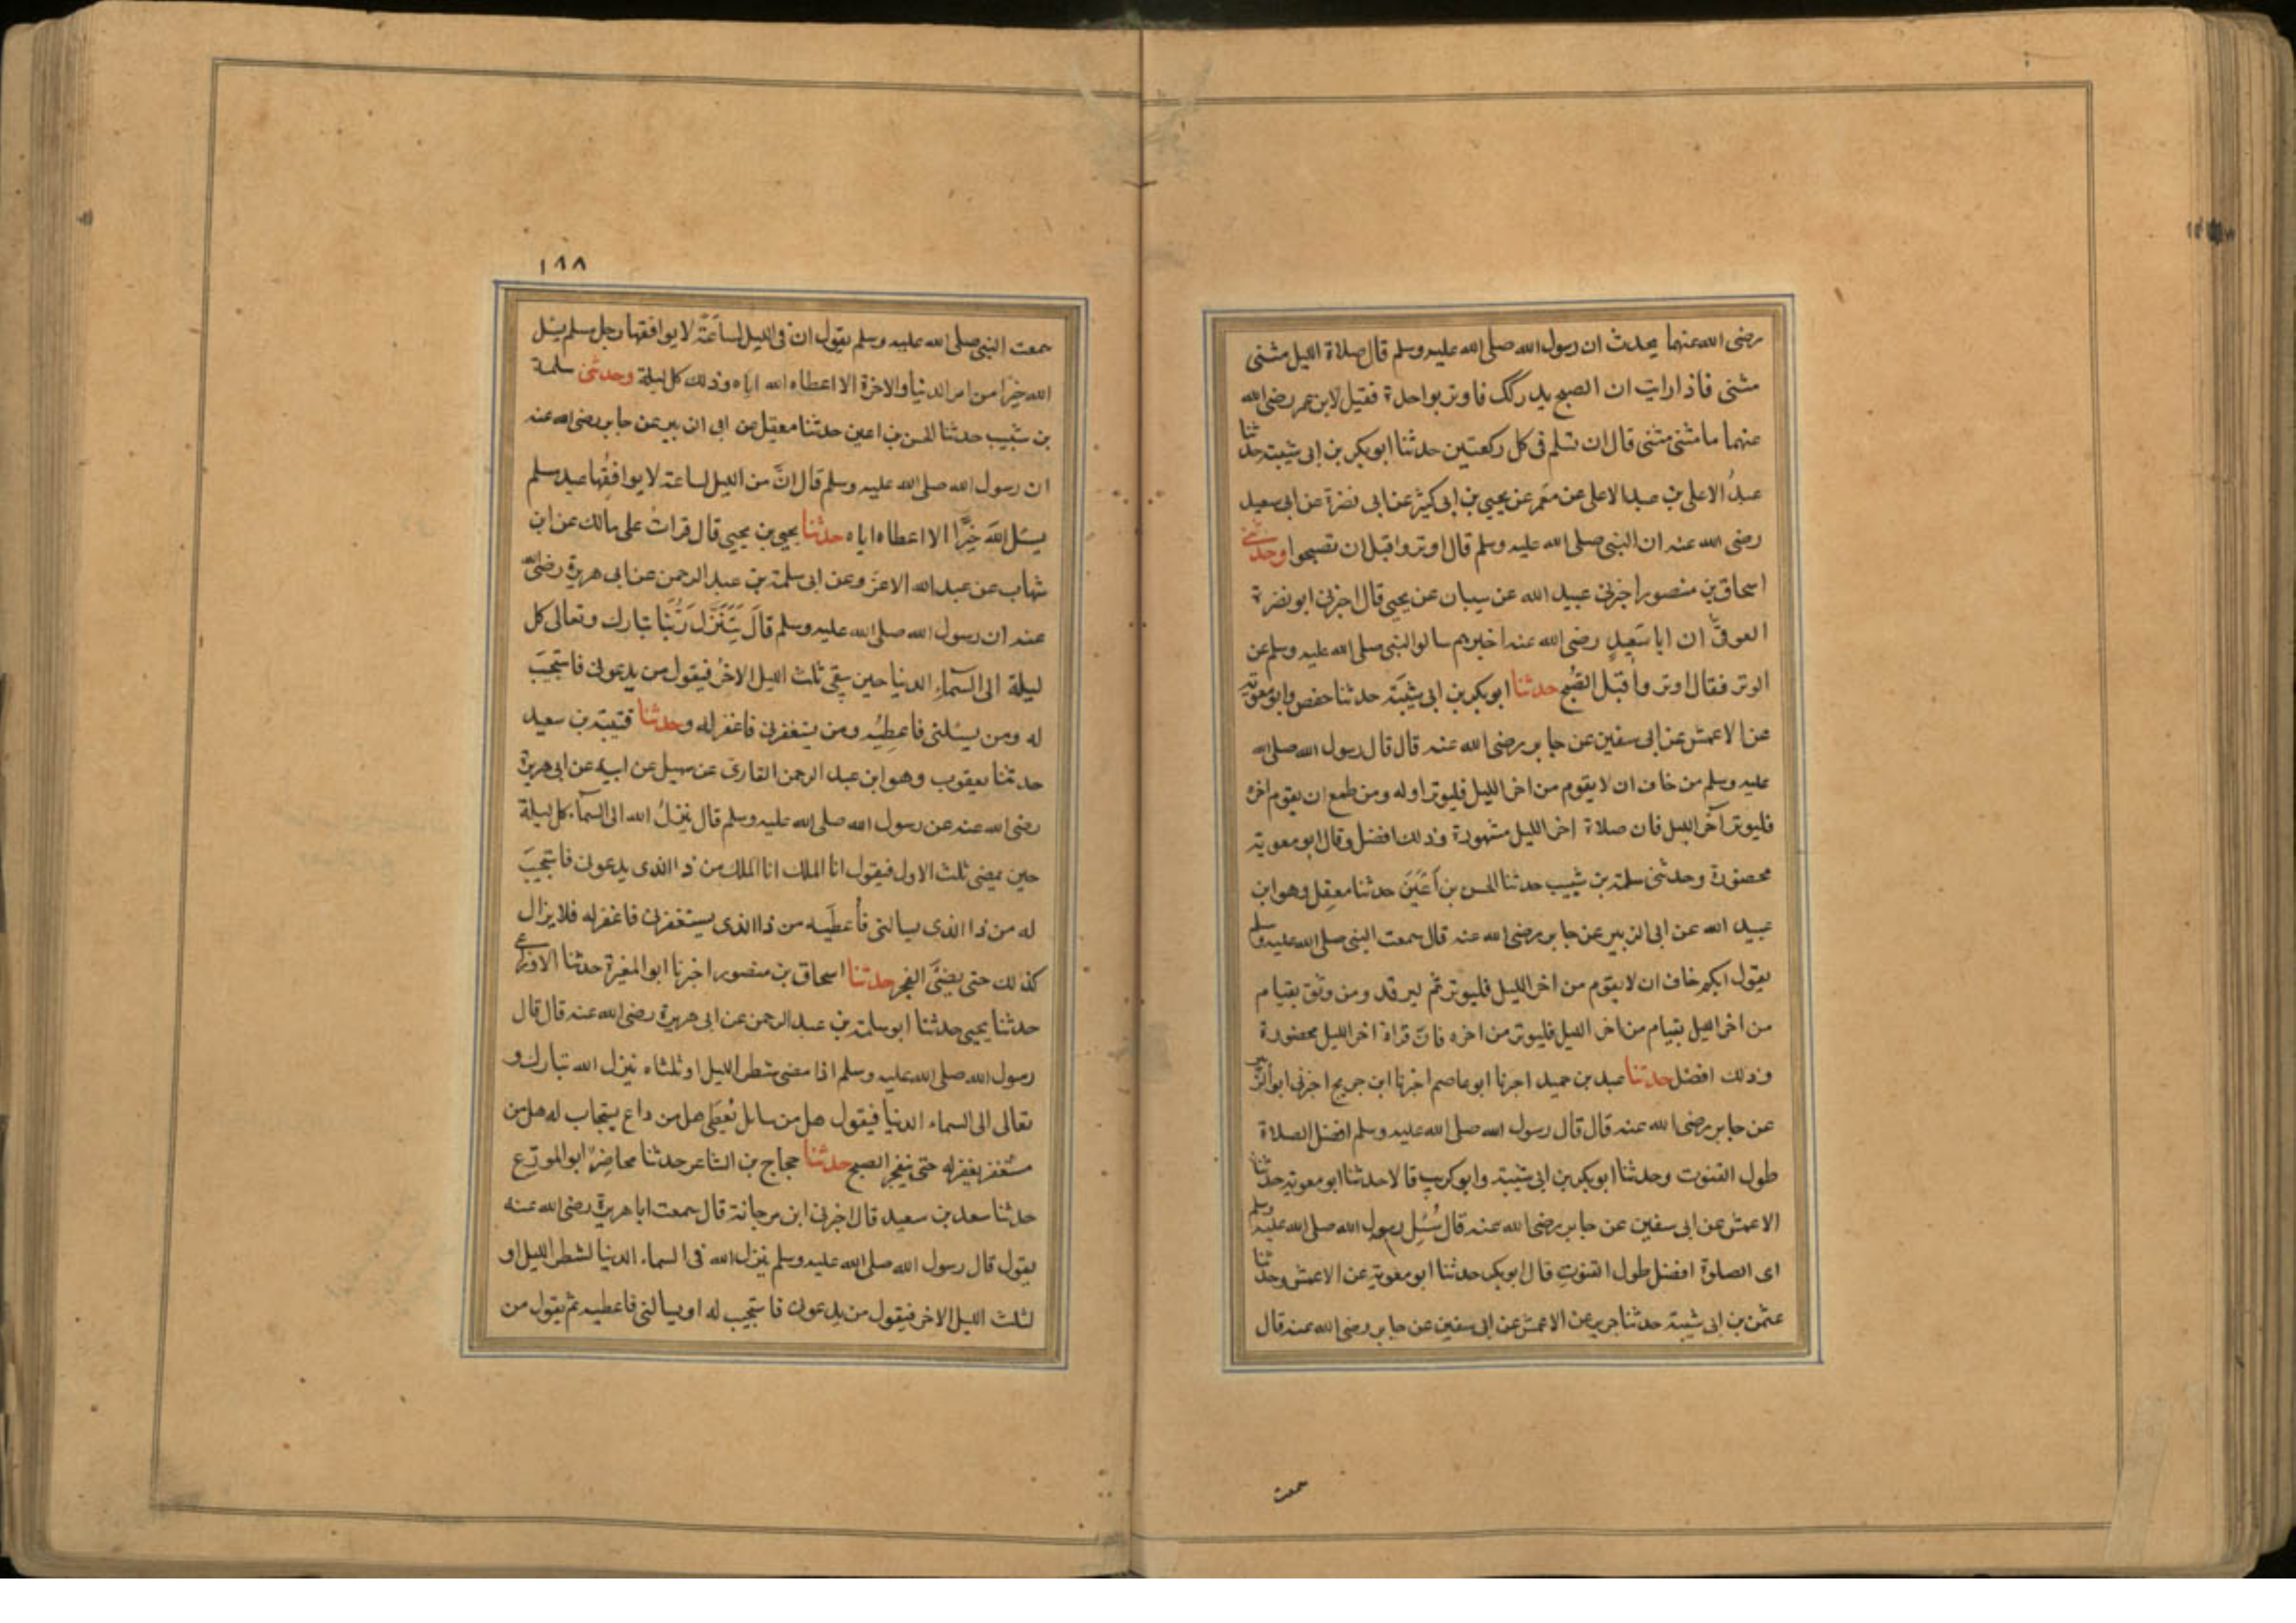 رضى الله عنهما يحدث ان رسول الله صلى الله عليه وسلم قال صلاة الليل مثنى
مثنى فاذا رايت ان الصبح يدركك فاوتر بواحدة فقيل لابن عمر رضى الله
عنهما ما مثنى مثنى قال ان تسلم فى كل ركعتين حدثنا ابو بكر بن ابى شيبة حدثنا
عبدُ الاعلى بن عبد الاعلى عن معمر عن يحيى بن ابى كثير عن ابى نضرة عن ابى سعيد
رضى الله عنه ان النبى صلى الله عليه وسلم قال اوتروا قبل ان تصبحوا وحدثنى
اسحاق بن منصور اخبرنى عبيد الله عن سيبان عن يحيى قال اخبرنى ابو نضرة
العوقى ان ابا سَعِيدٍ رضى الله عنه اخبرهم سالوا النبى صلى الله عليه وسلم عن
الوتر فقال اوتروا قبل الصُّبح حدثنا ابو بكر بن ابى شيبَة حدثنا حفص وابو معوية
عن الاعمش عن ابى سفين عن جابر رضى الله عنه قال قال رسول الله صلى الله
عليه وسلم من خاف ان لا يقوم من اخر الليل فليوتر اوله ومن طمع ان يقوم اخره
فليوتر آخر الليل فان صلاة اخر الليل مشهودة وذلك افضل وقال ابو معوية
محضورة وحدثنى سلمة بن شبيب حدثنا الحسن بن اَعْيَنَ حدثنا معقِل وهو ابن
عبيد الله عن ابى الزبير عن جابر رضى الله عنه قال سمعت النبى صلى الله عليه وسلم
يقول ايكم خاف ان لا يقوم من اخر الليل فليوتر ثم ليرقد ومن وثق بقيام
من اخر الليل بقيام من اخر الليل فليوتر من اخره فان قراة اخر الليل محضورة
وذلك افضل حدثنا عبد بن حميد اخبرنا ابو عاصم اخبرنا ابن جريج اخبرنى ابو الزبير
عن جابر رضى الله عنه قال قال رسول الله صلى الله عليه وسلم افضل الصلاة
طول القنوت وحدثنا ابو بكر بن ابى شيبة وابو كريب قالا حدثنا ابو معوية حدثنا
الاعمش عن ابى سفين عن جابر رضى الله عنه قال سُئِل رسول الله صلى الله عليه وسلم
اى الصلوة افضل طول القنوتِ قال ابو بكر حدثنا ابو معوية عن الاعمش وحدثنا
عثمن بن ابى شيبة حدثنا جرير عن الاعمش عن ابى سفين عن جابر رضى الله عنه قال
سمعت
١٨٨
سمعت النبى صلى الله عليه وسلم يقول ان فى الليل لساعَةً لا يوافقها رجل مسلم يسئل
الله خيرًا من امر الدنيا والاخرة الا اعطاه الله اياه وذلك كل ليلة وحدثنى سلمة
بن شبيب حدثنا الحسن بن اعين حدثنا معقل عن ابى الزبير عن جابر رضى الله عنه
ان رسول الله صلى الله عليه وسلم قال انَّ من الليل لساعة لا يوافقُها عبد مسلم
يسئل اللهَ خيرًا الا اعطاه اياه حدثنا يحيى بن يحيى قال قراتُ على مالك عن ابن
شهاب عن عبد الله الاغر وعن ابى سلمة بن عبد الرحمن عن ابى هريرة رضى الله
عنه ان رسول الله صلى الله عليه وسلم قالَ يَتَنَزَّلُ رَبُّنَا تبارك وتعالى كل
ليلة الى السّماءِ الدنيا حين يبقى ثلث الليل الاخرُ فيقول من يدعونى فاستجيبَ
له ومن يسئلنى فاعطِيُه ومن يستغفرنى فاغفر له وحدثنا قتيبة بن سعيد
حدثنا يعقوب وهو ابن عبد الرحمن القارى عن سهيل عن ابيه عن ابى هريرة
رضى الله عنه عن رسول الله صلى الله عليه وسلم قال ينزلُ الله الى السّماء كل ليلة
حين يمضى ثلث الاول فيقول انا الملك انا الملك من ذا الذى يدعونى فاستجيبَ
له من ذا الذى يسالنى فاُعطَيه من ذا الذى يستغفرنى فاغفر له فلا يزال
كذلك حتى يضئَى الفجر حدثنا اسحاق بن منصور اخبرنا ابو المغيرة حدثنا الاوزاعى
حدثنا يحيى حدثنا ابو سلمة بن عبد الرحمن عن ابى هريرة رضى الله عنه قال قال
رسول الله صلى الله عليه وسلم اذا مضى شطر الليل او ثلثاه ينزل الله تبارك و
تعالى الى السماء الدنيا فيقول هل من سائل يُعطى هل من داع يستجاب له هل من
مستغفر يغفر له حتى ينفجر الصبح حدثنا حجاج بن الشاعر حدثنا محاضِرٌ ابو المورّع
حدثنا سعد بن سعيد قال اخبرنى ابن مرجانة قال سمعت ابا هريرة رضى الله عنه
يقول قال رسول الله صلى الله عليه وسلم ينزل الله فى السماء الدنيا لشطر الليل او
لثلث الليل الاخر فيقول من يدعونى فاستجيب له او يسالنى فاعطيه ثم يقول من